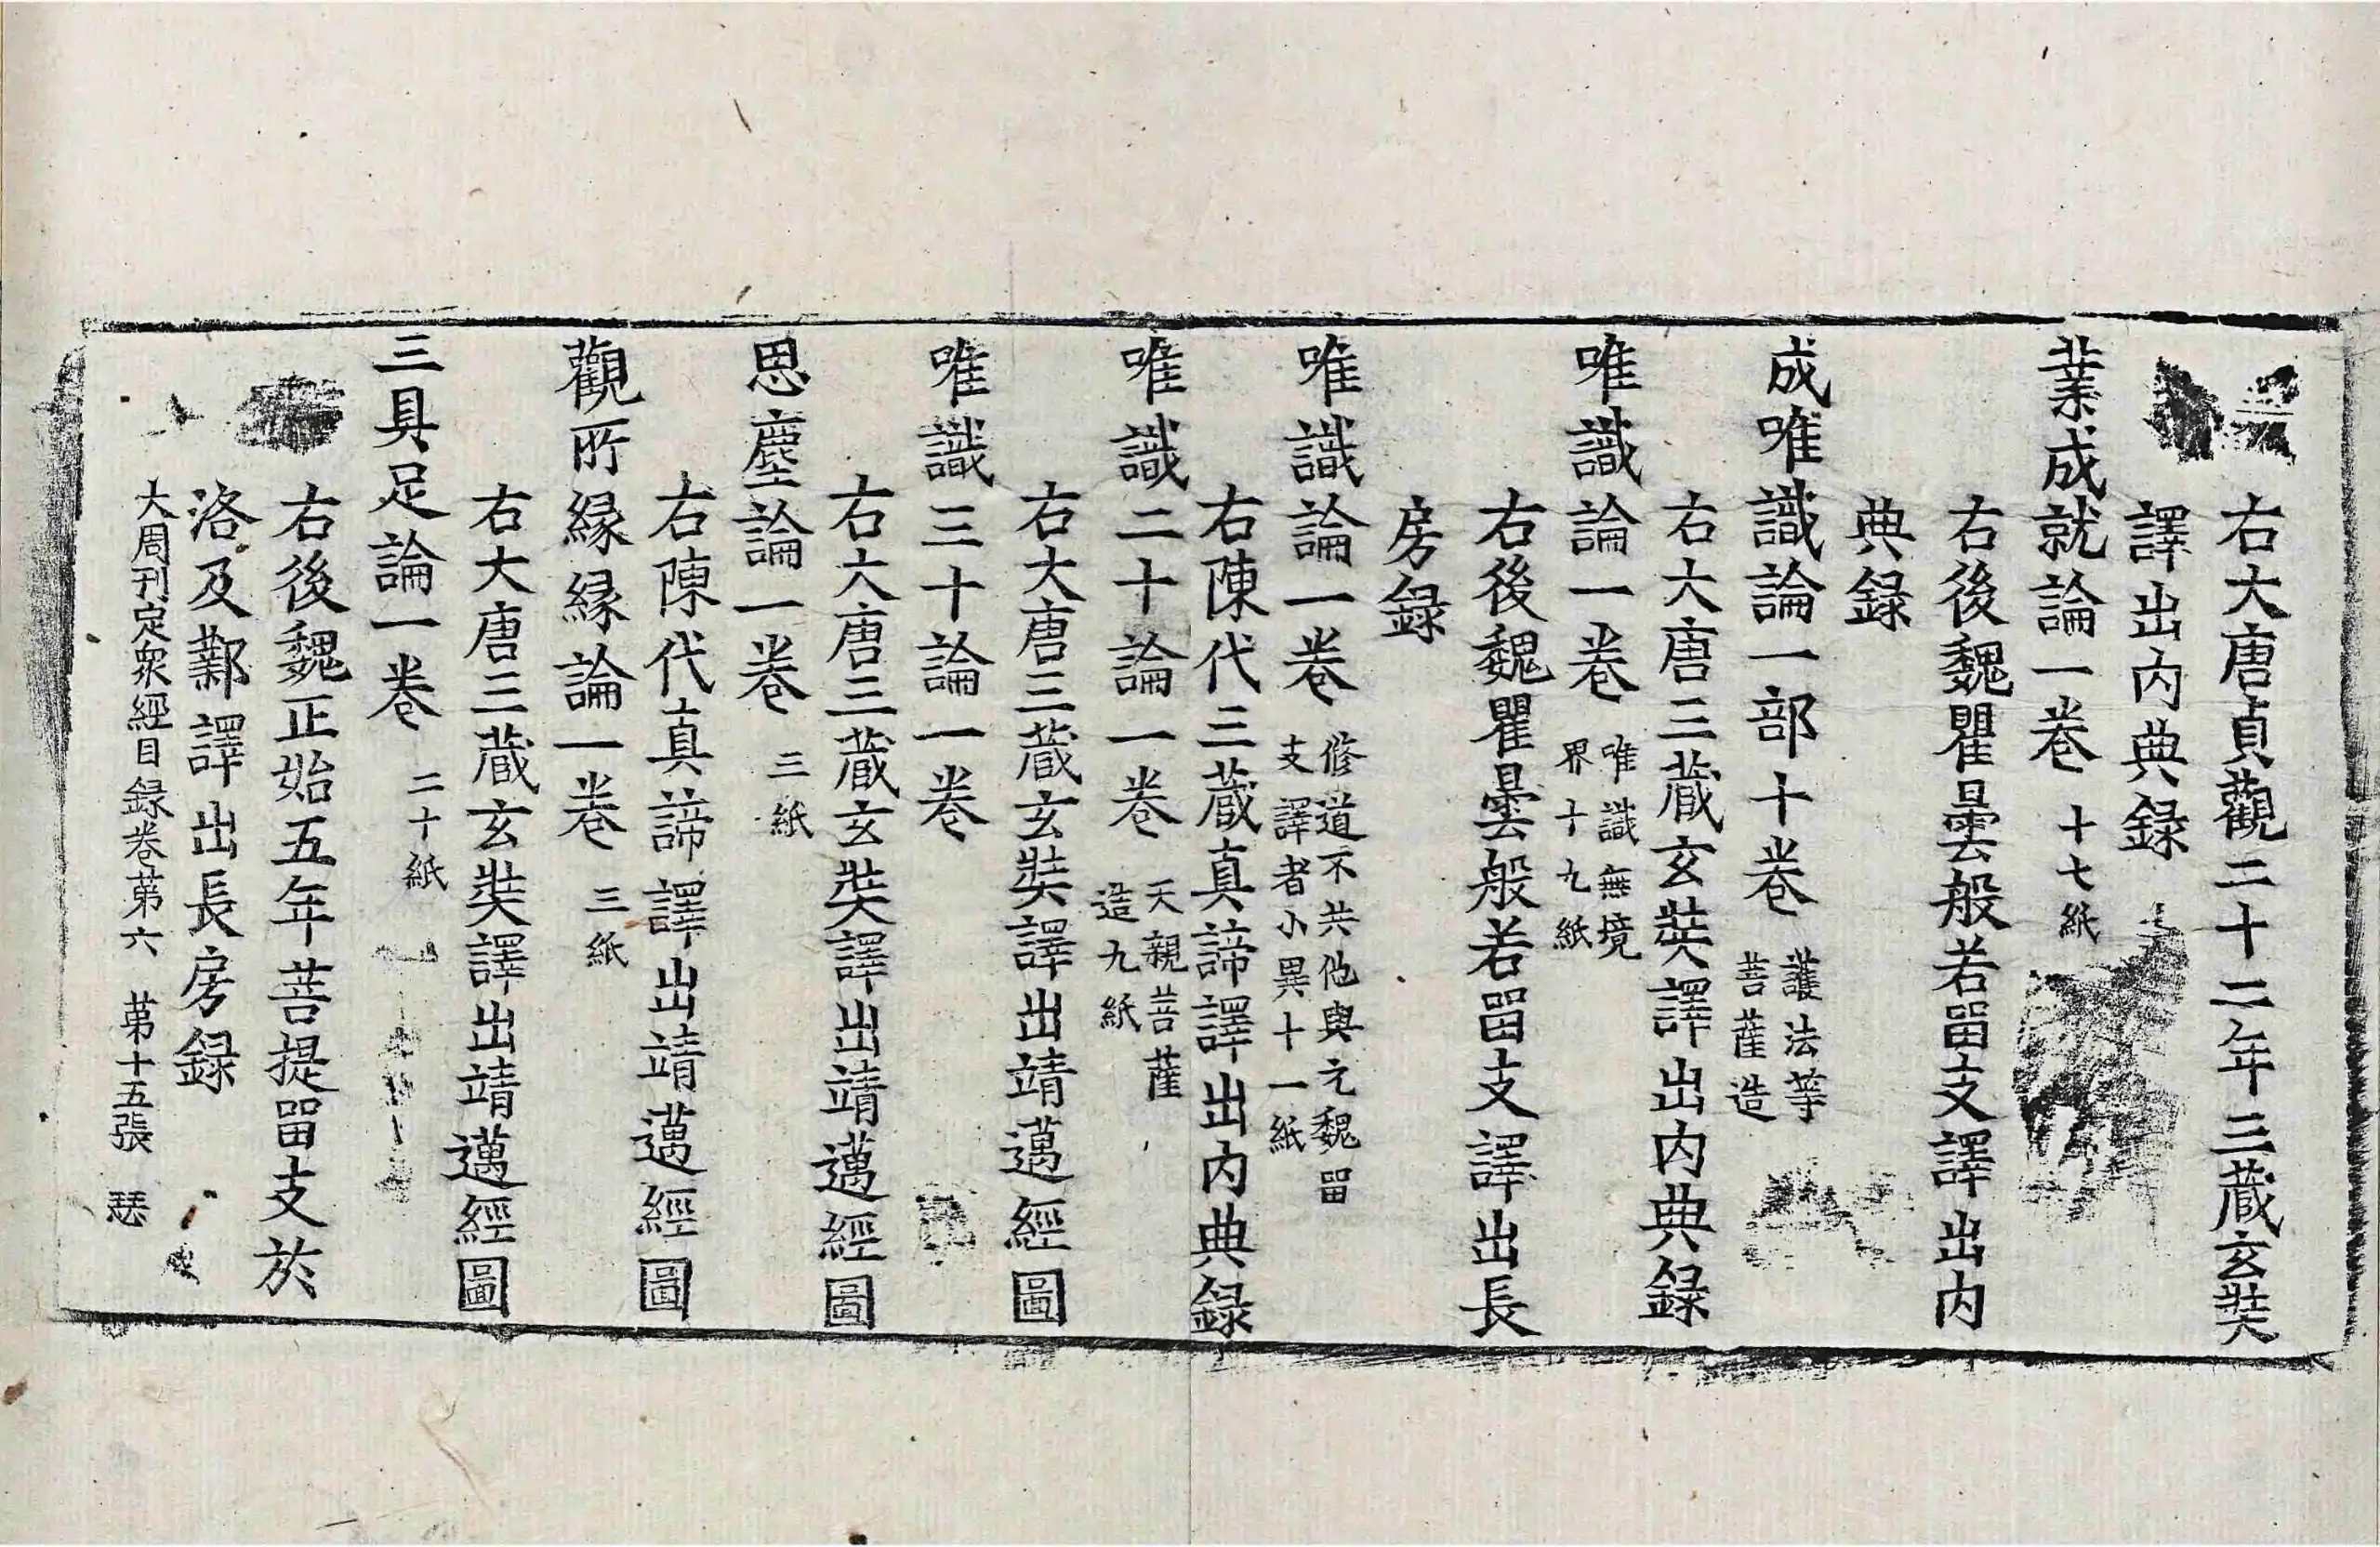 右大唐貞觀二十二年三藏玄奘
譯出內典録
業成就論一卷 十七紙
右後魏瞿曇般若留支譯出内
典録
成唯識論一部十卷 護法等
菩薩造
右大唐三藏玄奘譯出内典録
唯識論一卷 唯識無境
界十九紙
右後魏瞿曇般若留支譯出長
房録
唯識論一卷 修道不共他與元魏留
支譯者小異十一紙
右陳代三藏真諦譯出内典録
唯識二十論一卷 天親菩薩
造九紙
右大唐三藏玄奘譯出靖邁經圖
唯識三十論一卷
右大唐三藏玄奘譯出靖邁經圖
思塵論一卷 三紙
右陳代真諦譯出靖邁經圖
觀所緣緣論一卷 三紙
右大唐三藏玄奘譯出靖邁經圖
三具足論一卷 二十紙
右後魏正始五年菩提留支於
洛及鄴譯出長房録
大周刊定衆經目録卷第六 第十五張